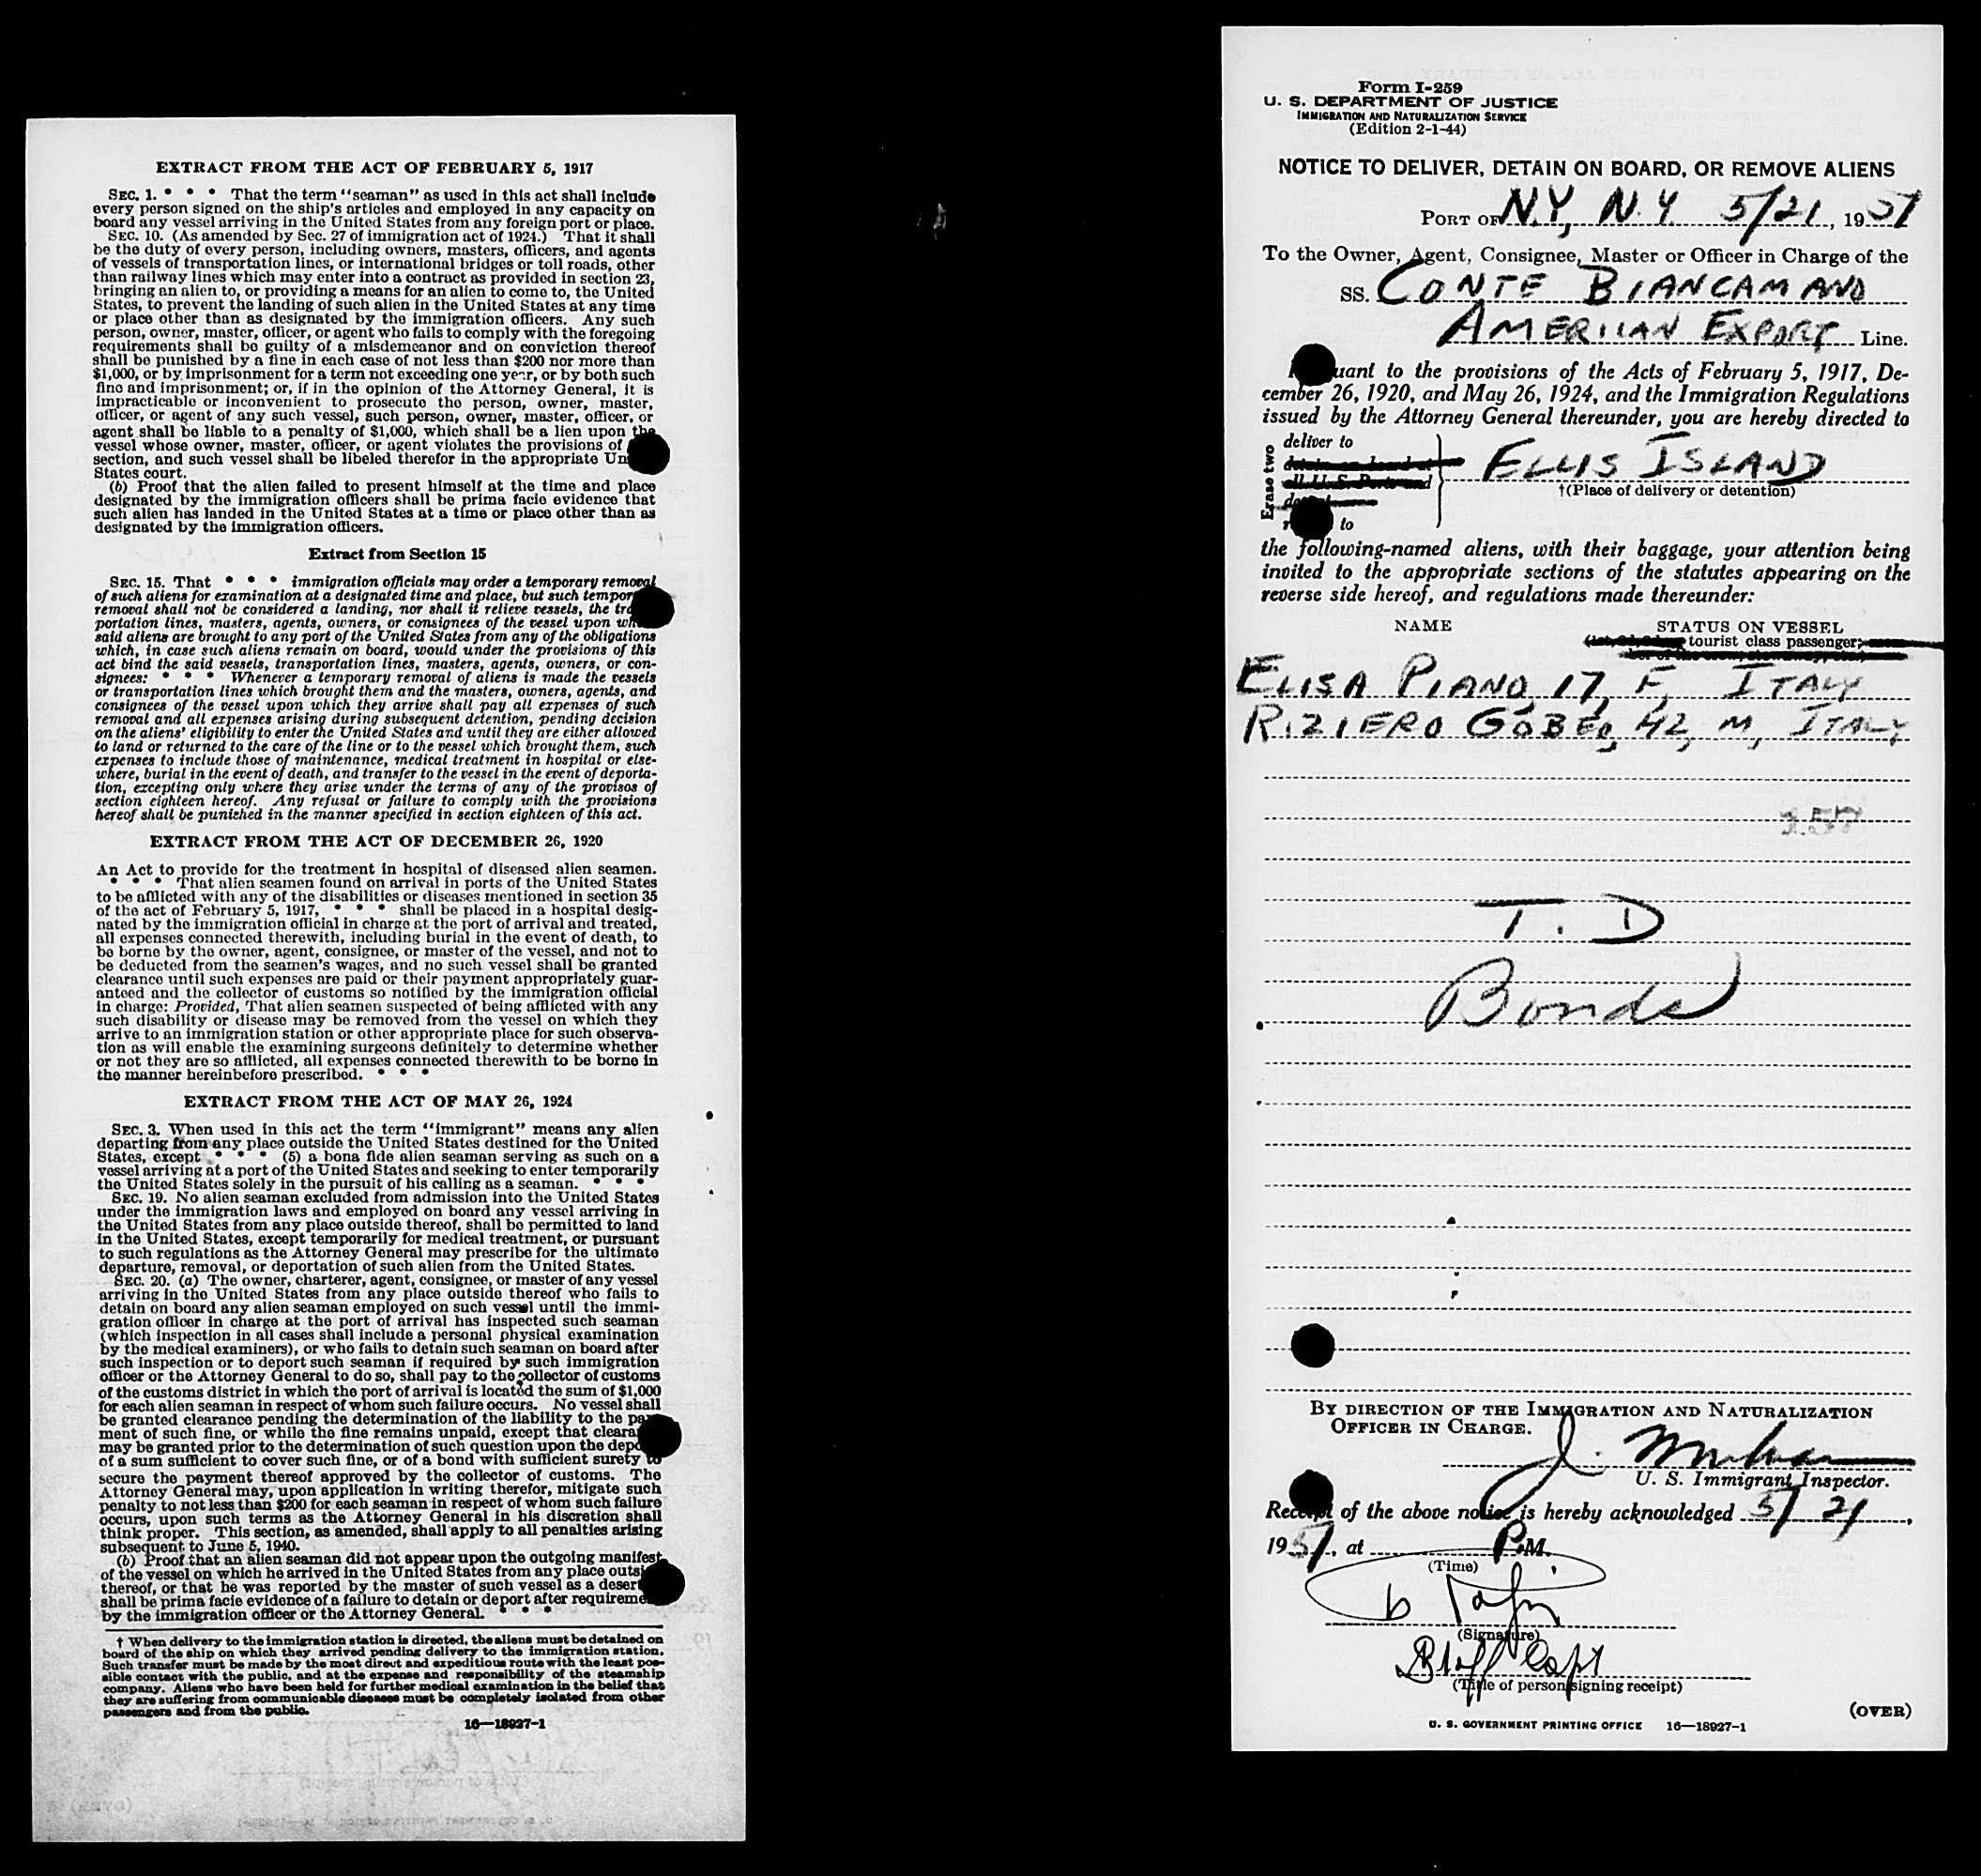 EXTRACT FROM THE ACT OF FEBRUARY 5, 1917
SEC. 1. * * * That the term "seaman" as used in this act shall include
every person signed on the ship's articles and employed in any capacity on
board any vessel arriving in the United States from any foreign port or place.
SEC. 10. (As amended by Sec. 27 of immigration act of 1924.) That it shall
be the duty of every person, including owners, masters, officers, and agents
of vessels of transportation lines, or international bridges or toll roads, other
than railway lines which may enter into a contract as provided in section 23,
bringing an alien to, or providing a means for an alien to come to, the United
States, to prevent the landing of such alien in the United States at any time
or place other than as designated by the immigration officers. Any such
person, owner, master, officer, or agent who fails to comply with the foregoing
requirements shall be guilty of a misdemeanor and on conviction thereof
shall be punished by a fine in each case of not less than $200 nor more than
$1,000, or by imprisonment for a term not exceeding one year, or by both such
fine and imprisonment; or, if in the opinion of the Attorney General, it is
impracticable or inconvenient to prosecute the person, owner, master,
officer, or agent of any such vessel, such person, owner, master, officer, or
agent shall be liable to a penalty of $1,000, which shall be a lien upon the
vessel whose owner, master, officer, or agent violates the provisions of
section, and such vessel shall be libeled therefor in the appropriate Un
States court.
(b) Proof that the alien failed to present himself at the time and place
designated by the immigration officers shall be prima facie evidence that
such alien has landed in the United States at a time or place other than as
designated by the immigration officers.
Extract from Section 15
SEC. 15. That * * * immigration officials may order a temporary removal
of such aliens for examination at a designated time and place, but such tempor
removal shall not be considered a landing, nor shall it relieve vessels, the tra
portation lines, masters, agents, owners, or consignees of the vessel upon wh
said aliens are brought to any port of the United States from any of the obligations
which, in case such aliens remain on board, would under the provisions of this
act bind the said vessels, transportation lines, masters, agents, owners, or con-
signees: * * * Whenever a temporary removal of aliens is made the vessels
or transportation lines which brought them and the masters, owners, agents, and
consignees of the vessel upon which they arrive shall pay all expenses of such
removal and all expenses arising during subsequent detention, pending decision
on the aliens' eligibility to enter the United States and until they are either allowed
to land or returned to the care of the line or to the vessel which brought them, such
expenses to include those of maintenance, medical treatment in hospital or else-
where, burial in the event of death, and transfer to the vessel in the event of deporta-
tion, excepting only where they arise under the terms of any of the provisos of
section eighteen hereof. Any refusal or failure to comply with the provisions
hereof shall be punished in the manner specified in section eighteen of this act.
EXTRACT FROM THE ACT OF DECEMBER 26, 1920
An Act to provide for the treatment in hospital of diseased alien seamen.
* * * That alien seamen found on arrival in ports of the United States
to be afflicted with any of the disabilities or diseases mentioned in section 35
of the act of February 5, 1917, * * * shall be placed in a hospital desig-
nated by the immigration official in charge at the port of arrival and treated,
all expenses connected therewith, including burial in the event of death, to
be borne by the owner, agent, consignee, or master of the vessel, and not to
be deducted from the seamen's wages, and no such vessel shall be granted
clearance until such expenses are paid or their payment appropriately guar-
anteed and the collector of customs so notified by the immigration official
in charge: Provided, That alien seamen suspected of being afflicted with any
such disability or disease may be removed from the vessel on which they
arrive to an immigration station or other appropriate place for such observa-
tion as will enable the examining surgeons definitely to determine whether
or not they are so afflicted, all expenses connected therewith to be borne in
the manner hereinbefore prescribed. * * *
EXTRACT FROM THE ACT OF MAY 26, 1924
SEC. 3. When used in this act the term "immigrant" means any alien
departing from any place outside the United States destined for the United
States, except * * * (5) a bona fide alien seaman serving as such on a
vessel arriving at a port of the United States and seeking to enter temporarily
the United States solely in the pursuit of his calling as a seaman. * * *
SEC. 19. No alien seaman excluded from admission into the United States
under the immigration laws and employed on board any vessel arriving in
the United States from any place outside thereof, shall be permitted to land
in the United States, except temporarily for medical treatment, or pursuant
to such regulations as the Attorney General may prescribe for the ultimate
departure, removal, or deportation of such alien from the United States.
SEC. 20. (a) The owner, charterer, agent, consignee, or master of any vessel
arriving in the United States from any place outside thereof who fails to
detain on board any alien seaman employed on such vessel until the immi-
gration officer in charge at the port of arrival has inspected such seaman
(which inspection in all cases shall include a personal physical examination
by the medical examiners), or who fails to detain such seaman on board after
such inspection or to deport such seaman if required by such immigration
officer or the Attorney General to do so, shall pay to the collector of customs
of the customs district in which the port of arrival is located the sum of $1,000
for each alien seaman in respect of whom such failure occurs. No vessel shall
be granted clearance pending the determination of the liability to the pay
ment of such fine, or while the fine remains unpaid, except that cleara
may be granted prior to the determination of such question upon the depo
of a sum sufficient to cover such fine, or of a bond with sufficient surety to
secure the payment thereof approved by the collector of customs. The
Attorney General may, upon application in writing therefor, mitigate such
penalty to not less than $200 for each seaman in respect of whom such failure
occurs, upon such terms as the Attorney General in his discretion shall
think proper. This section, as amended, shall apply to all penalties arising
subsequent to June 5, 1940.
(b) Proof that an alien seaman did not appear upon the outgoing manifest
of the vessel on which he arrived in the United States from any place outsi
thereof, or that he was reported by the master of such vessel as a desert
shall be prima facie evidence of a failure to detain or deport after requireme
by the immigration officer or the Attorney General. * * *
† When delivery to the immigration station is directed, the aliens must be detained on
board of the ship on which they arrived pending delivery to the immigration station.
Such transfer must be made by the most direct and expeditious route with the least pos-
sible contact with the public, and at the expense and responsibility of the steamship
company. Aliens who have been held for further medical examination in the belief that
they are suffering from communicable diseases must be completely isolated from other
passengers and from the public.
16—18927-1
Form I-259
U. S. DEPARTMENT OF JUSTICE
IMMIGRATION AND NATURALIZATION SERVICE
(Edition 2-1-44)
NOTICE TO DELIVER, DETAIN ON BOARD, OR REMOVE ALIENS
PORT OF N.Y., N.Y. 5/21, 1951
To the Owner, Agent, Consignee, Master or Officer in Charge of the
SS. CONTE BIANCAMANO
AMERICAN EXPORT Line.
uant to the provisions of the Acts of February 5, 1917, De-
cember 26, 1920, and May 26, 1924, and the Immigration Regulations
issued by the Attorney General thereunder, you are hereby directed to
Erase two
deliver to
detain on board at
all U. S. Ports and
to
ELLIS ISLAND
†(Place of delivery or detention)
the following-named aliens, with their baggage, your attention being
invited to the appropriate sections of the statutes appearing on the
reverse side hereof, and regulations made thereunder:
NAME STATUS ON VESSEL
tourist class passenger;
ELISA PIANO, 17, F, ITALY
RIZIERO GOBEO, 42, M, ITALY
T. D
Bonds
BY DIRECTION OF THE IMMIGRATION AND NATURALIZATION
OFFICER IN CHARGE.
J.
U. S. Immigrant Inspector.
Receipt of the above notice is hereby acknowledged 5/21,
1951, at P.M.
(Time)
(Signature)
Staff Capt
(Title of person signing receipt)
(OVER)
U. S. GOVERNMENT PRINTING OFFICE 16—18927-1